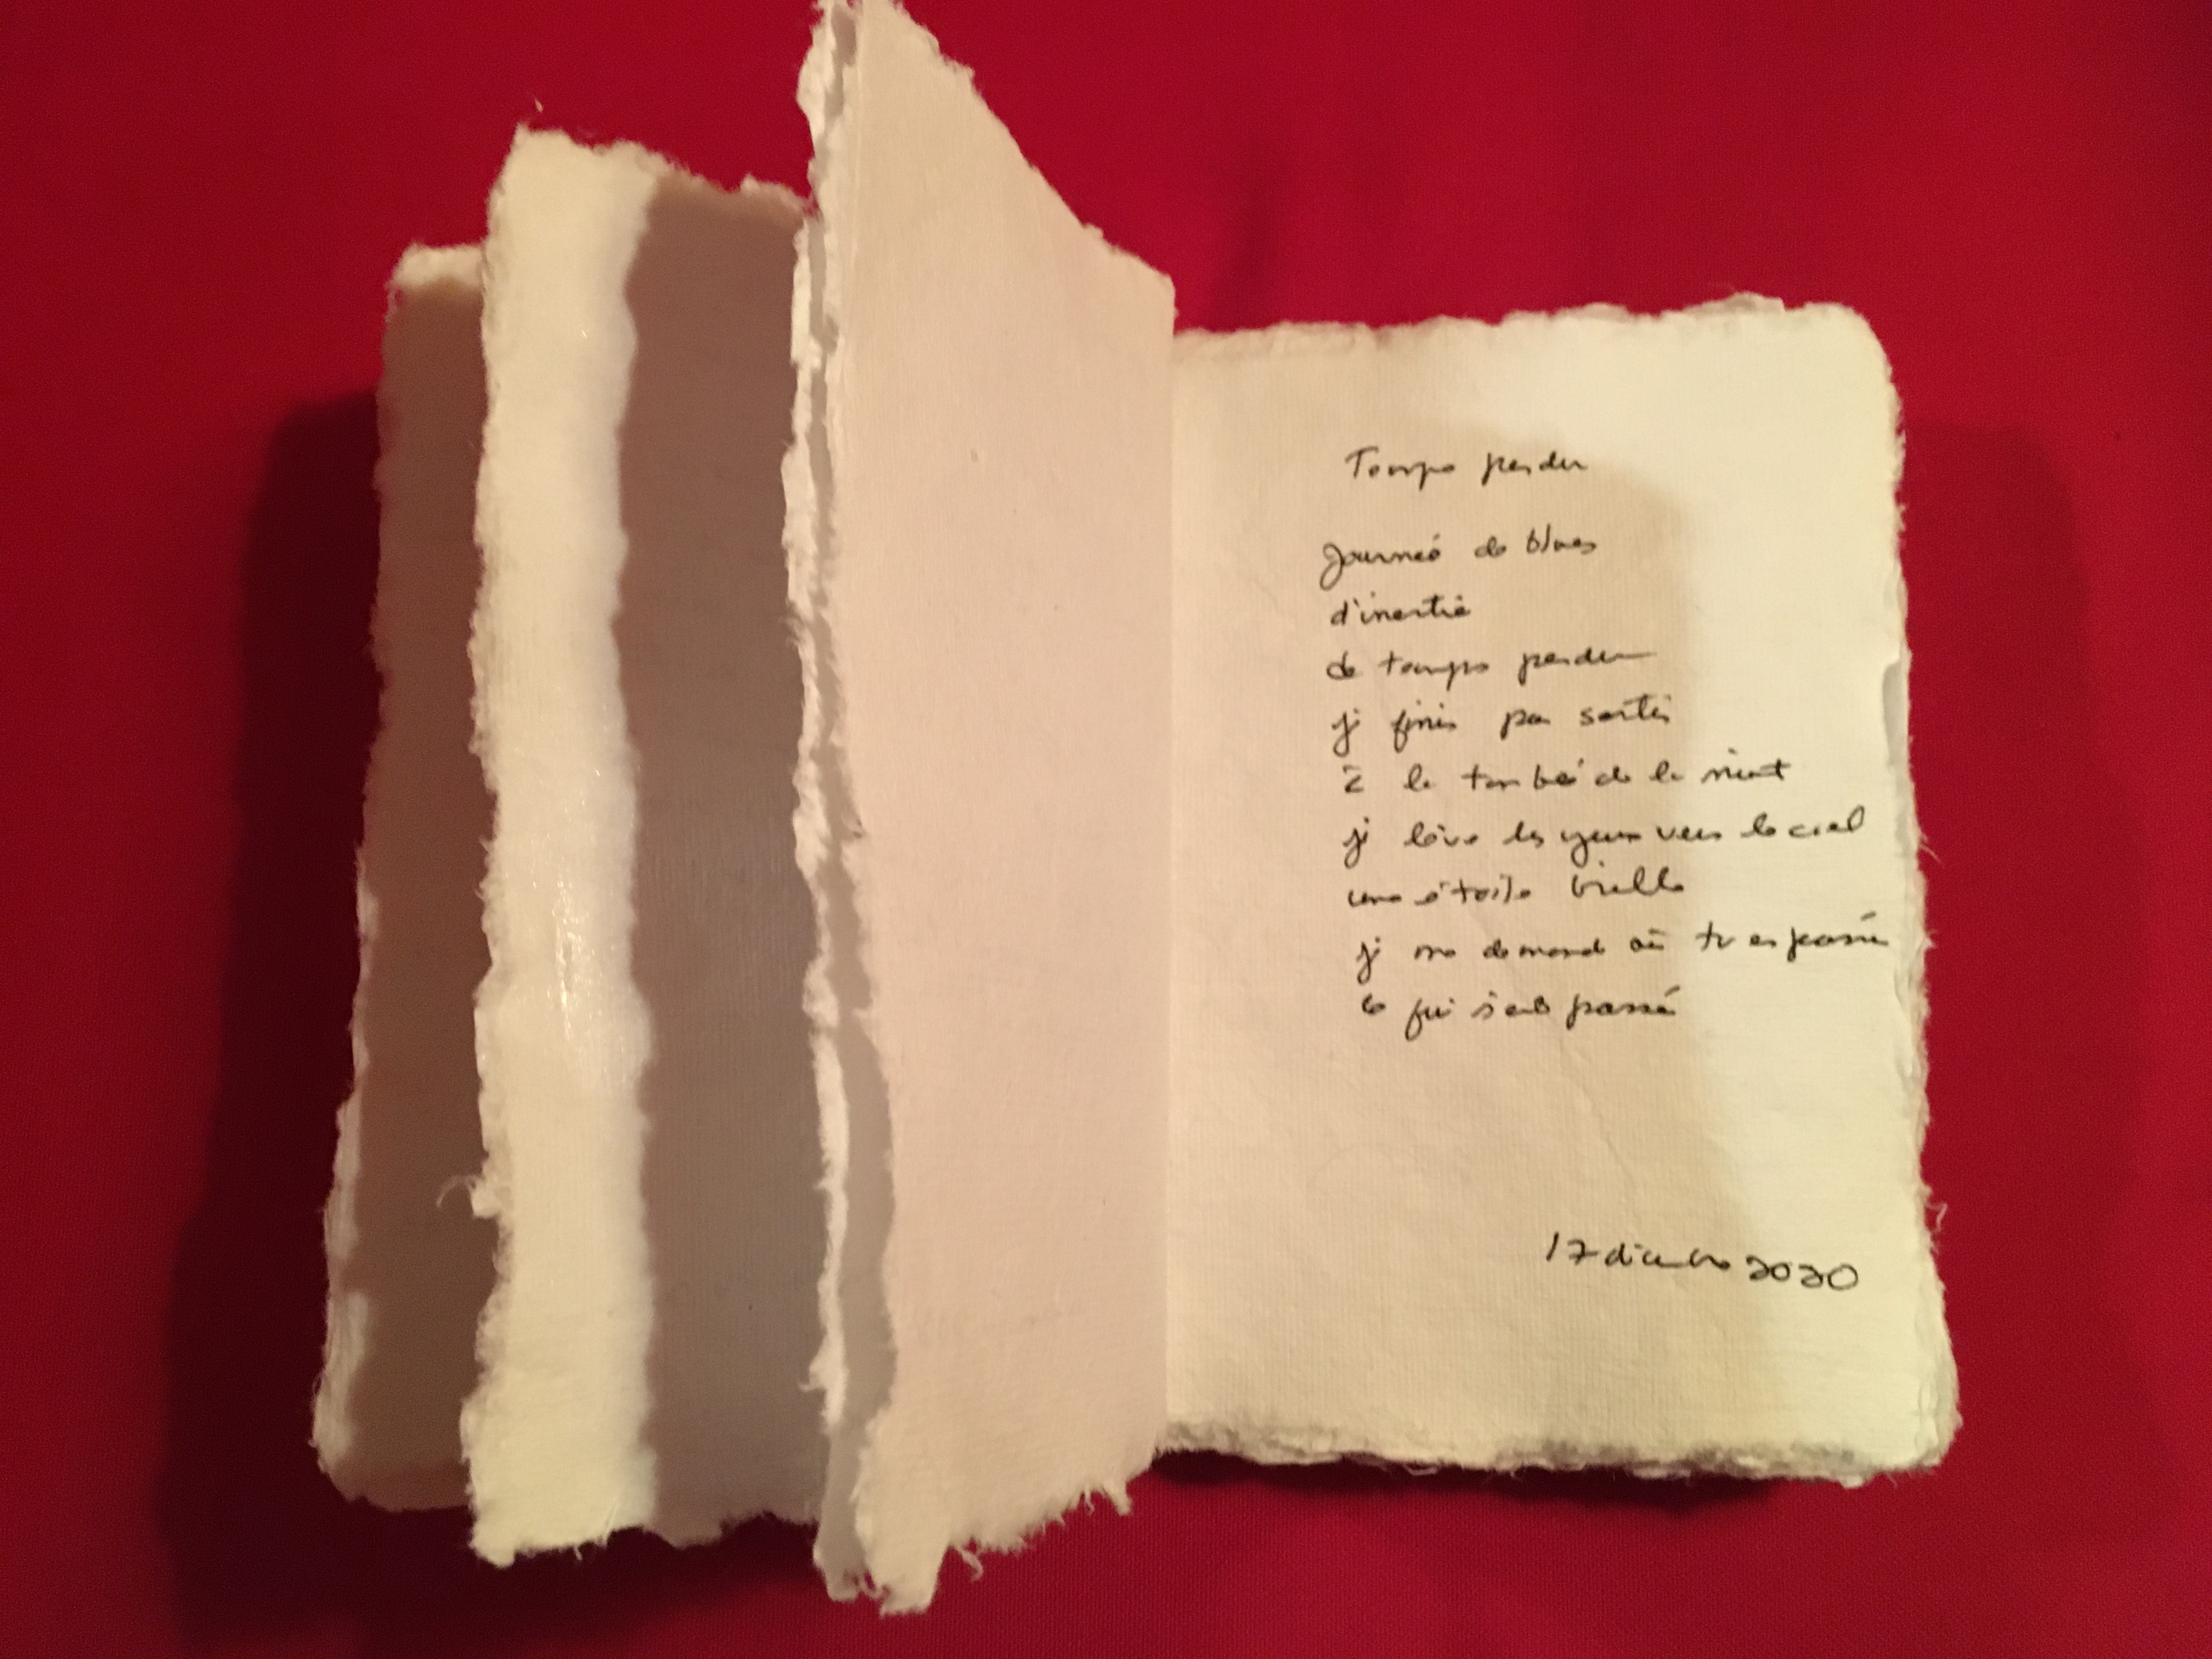 Temps perdu
Journée de blues
d'inertie
de temps perdu
je finis par sortir
à la tombée de la nuit
je lève les yeux vers le ciel
une étoile brille
je me demande où tu es passée
ce qui s'est passé
17 décembre 2020